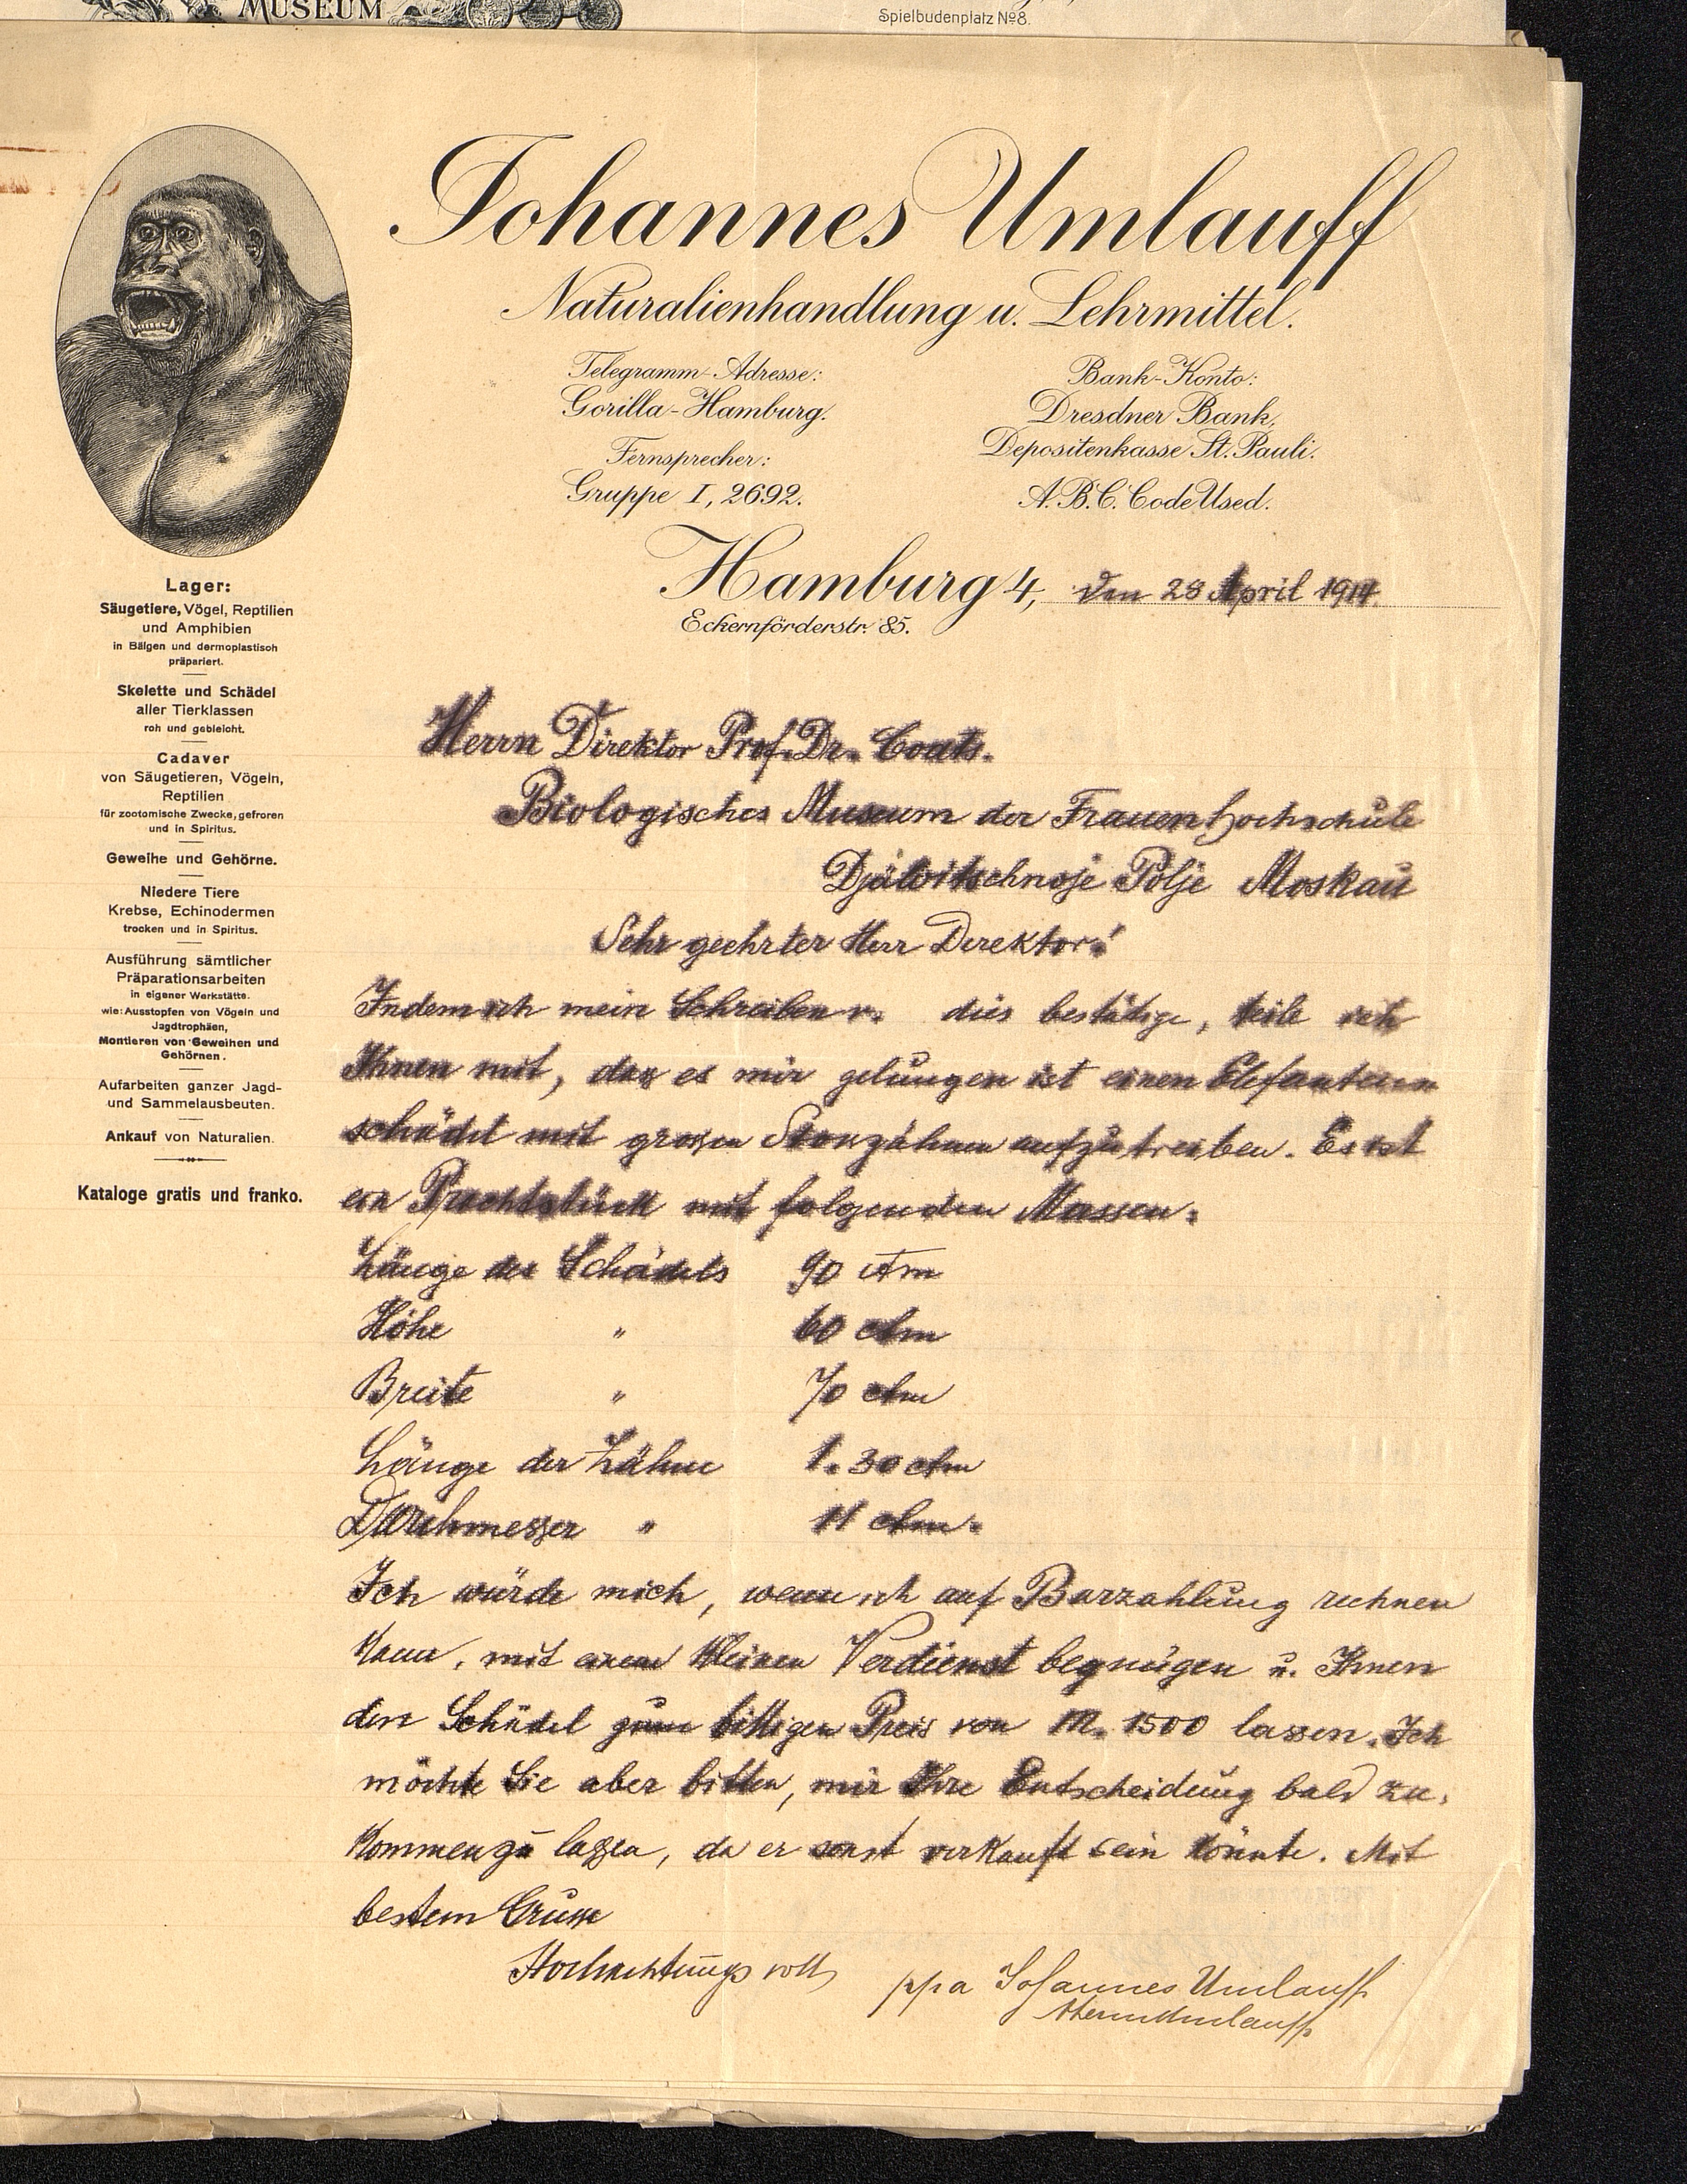 MUSEUM
Spielbudenplatz No 8.
Johannes Umlauff
Naturalienhandlung u. Lehrmittel.
Telegramm-Adresse:
Gorilla-Hamburg.
Fernsprecher:
Gruppe I, 2692.
Bank-Konto:
Dresdner Bank,
Depositenkasse St. Pauli.
A.B.C. Code Used.
Hamburg 4, den 28 April 1914.
Eckernförderstr. 85.
Lager:
Säugetiere, Vögel, Reptilien
und Amphibien
in Bälgen und dermoplastisch
präpariert.
Skelette und Schädel
aller Tierklassen
roh und gebleicht.
Cadaver
von Säugetieren, Vögeln,
Reptilien
für zootomische Zwecke, gefroren
und in Spiritus.
Geweihe und Gehörne.
Niedere Tiere
Krebse, Echinodermen
trocken und in Spiritus.
Ausführung sämtlicher
Präparationsarbeiten
in eigener Werkstätte.
wie: Ausstopfen von Vögeln und
Jagdtrophäen,
Montieren von Geweihen und
Gehörnen.
Aufarbeiten ganzer Jagd-
und Sammelausbeuten.
Ankauf von Naturalien.
Kataloge gratis und franko.
Herrn Direktor Prof. Dr. Coats.
Biologisches Museum der Frauenhochschule
Polje Moskau
Sehr geehrter Herr Direktor!
Indem ich mein Schreiben v. dies bestätige, teile ich
Ihnen mit, dass es mir gelungen ist einen Elefanten
schädel mit grossen Stosszähnen aufzutreiben. Es ist
ein Prachtstück mit folgenden Massen.
Länge des Schädels 90 ctm
Höhe " 60 ctm
Breite " 70 ctm
Länge der Zähne 1.30 ctm
Durchmesser " 11 ctm.
Ich würde mich, wenn ich auf Barzahlung rechnen
kann, mit einem kleinen Verdienst begnügen u. Ihnen
den Schädel zum billigen Preis von M. 1500 lassen. Ich
möchte Sie aber bitten, mir Ihre Entscheidung bald zu-
kommen zu lassen, da er sonst verkauft sein könnte. Mit
bestem Grusse
Hochachtungsvoll
ppa Johannes Umlauff
Umlauff